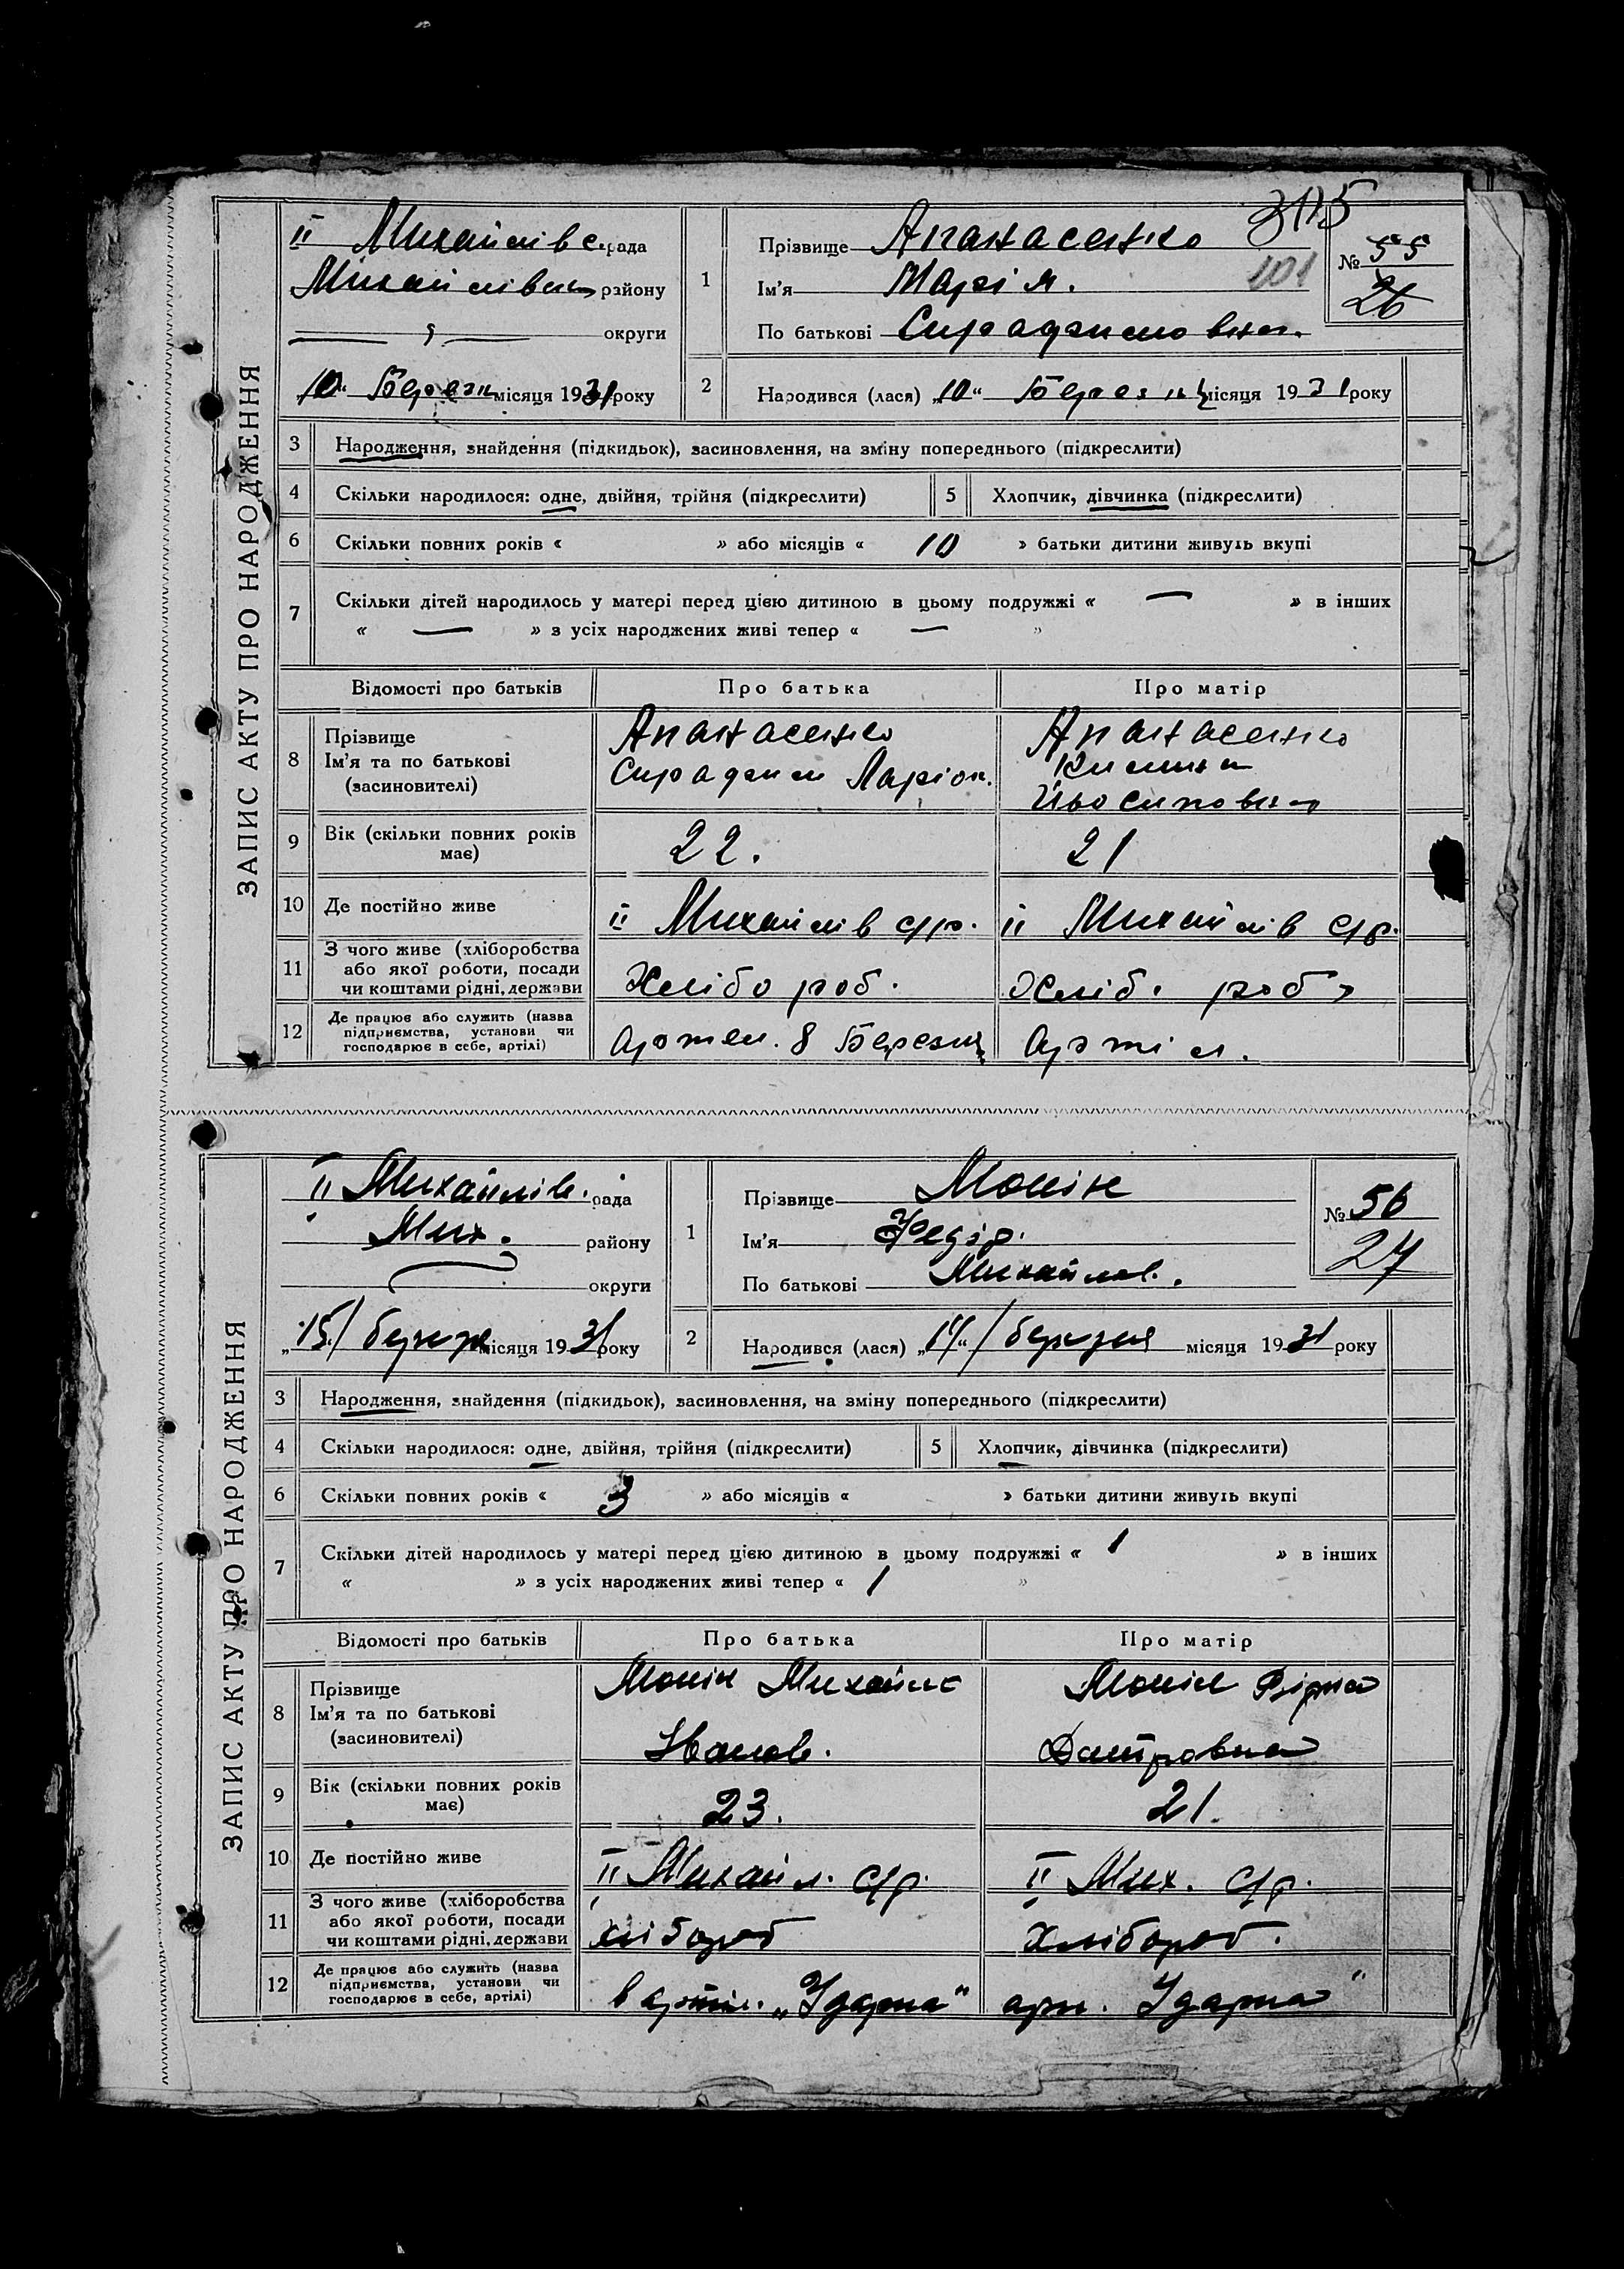 ЗАПИС АКТУ ПРО НАРОДЖЕННЯ
3115
101
II Михайлів с. рада
Михайлівськ району
округи
„10“ Березня місяця 1931 року
1 Прізвище Апанасенко
Ім’я Марія.
По батькові
№ 55
26
2 Народився (лася) „10“ Березня місяця 1931 року
3 Народження, знайдення (підкидьок), засиновлення, на зміну попереднього (підкреслити)
4 Скільки народилося: одне, двійня, трійня (підкреслити) 5 Хлопчик, дівчинка (підкреслити)
6 Скільки повних років « » або місяців « 10 » батьки дитини живуть вкупі
7 Скільки дітей народилось у матері перед цією дитиною в цьому подружжі « — » в інших
« — » з усіх народжених живі тепер « — »
Відомості про батьків Про батька Про матір
8 Прізвище
Ім’я та по батькові
(засиновителі)
Апанасенко
Ларіон.
Апанасенко
Килина
Йосиповна
9 Вік (скільки повних років
має) 22. 21
10 Де постійно живе II Михайлів с/р. II Михайлів с/р.
11 З чого живе (хліборобства
або якої роботи, посади
чи коштами рідні, держави
Хлібороб. Хліб. роб.
12 Де працює або служить (назва
підприємства, установи чи
господарює в себе, артілі)
Артел. 8 Березня Артіл.
ЗАПИС АКТУ ПРО НАРОДЖЕННЯ
II Михайлів. рада
Мих. району
округи
„15“ березня місяця 1931 року
1 Прізвище Монін
Ім’я Федір.
По батькові Михайлов.
№ 56
27
2 Народився (лася) „14“ березня місяця 1931 року
3 Народження, знайдення (підкидьок), засиновлення, на зміну попереднього (підкреслити)
4 Скільки народилося: одне, двійня, трійня (підкреслити) 5 Хлопчик, дівчинка (підкреслити)
6 Скільки повних років « 3 » або місяців « » батьки дитини живуть вкупі
7 Скільки дітей народилось у матері перед цією дитиною в цьому подружжі « 1 » в інших
« » з усіх народжених живі тепер « 1 »
Відомості про батьків Про батька Про матір
8 Прізвище
Ім’я та по батькові
(засиновителі)
Монін Михайло
Іванов.
Монін
Дмитровна
9 Вік (скільки повних років
має) 23. 21.
10 Де постійно живе II Михайл. с/р. II Мих. с/р.
11 З чого живе (хліборобства
або якої роботи, посади
чи коштами рідні, держави
хлібороб Хлібороб.
12 Де працює або служить (назва
підприємства, установи чи
господарює в себе, артілі)
в артіл. „Ударна“ арт. Ударна“